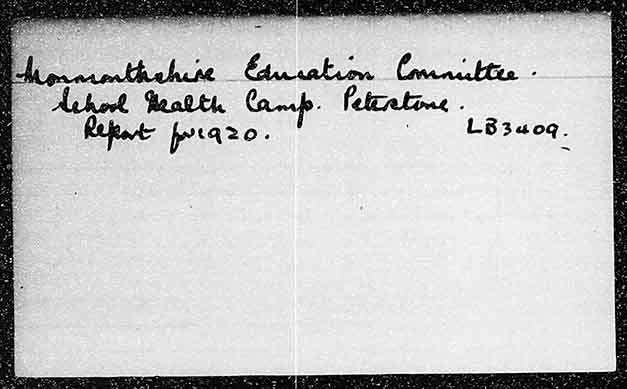 Monmonthshire Education Committee.
School Health Camp. Peterstone.
Report for 1920. LB3409.